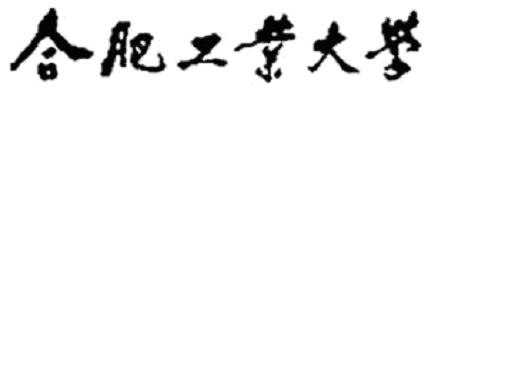 合肥工業大學